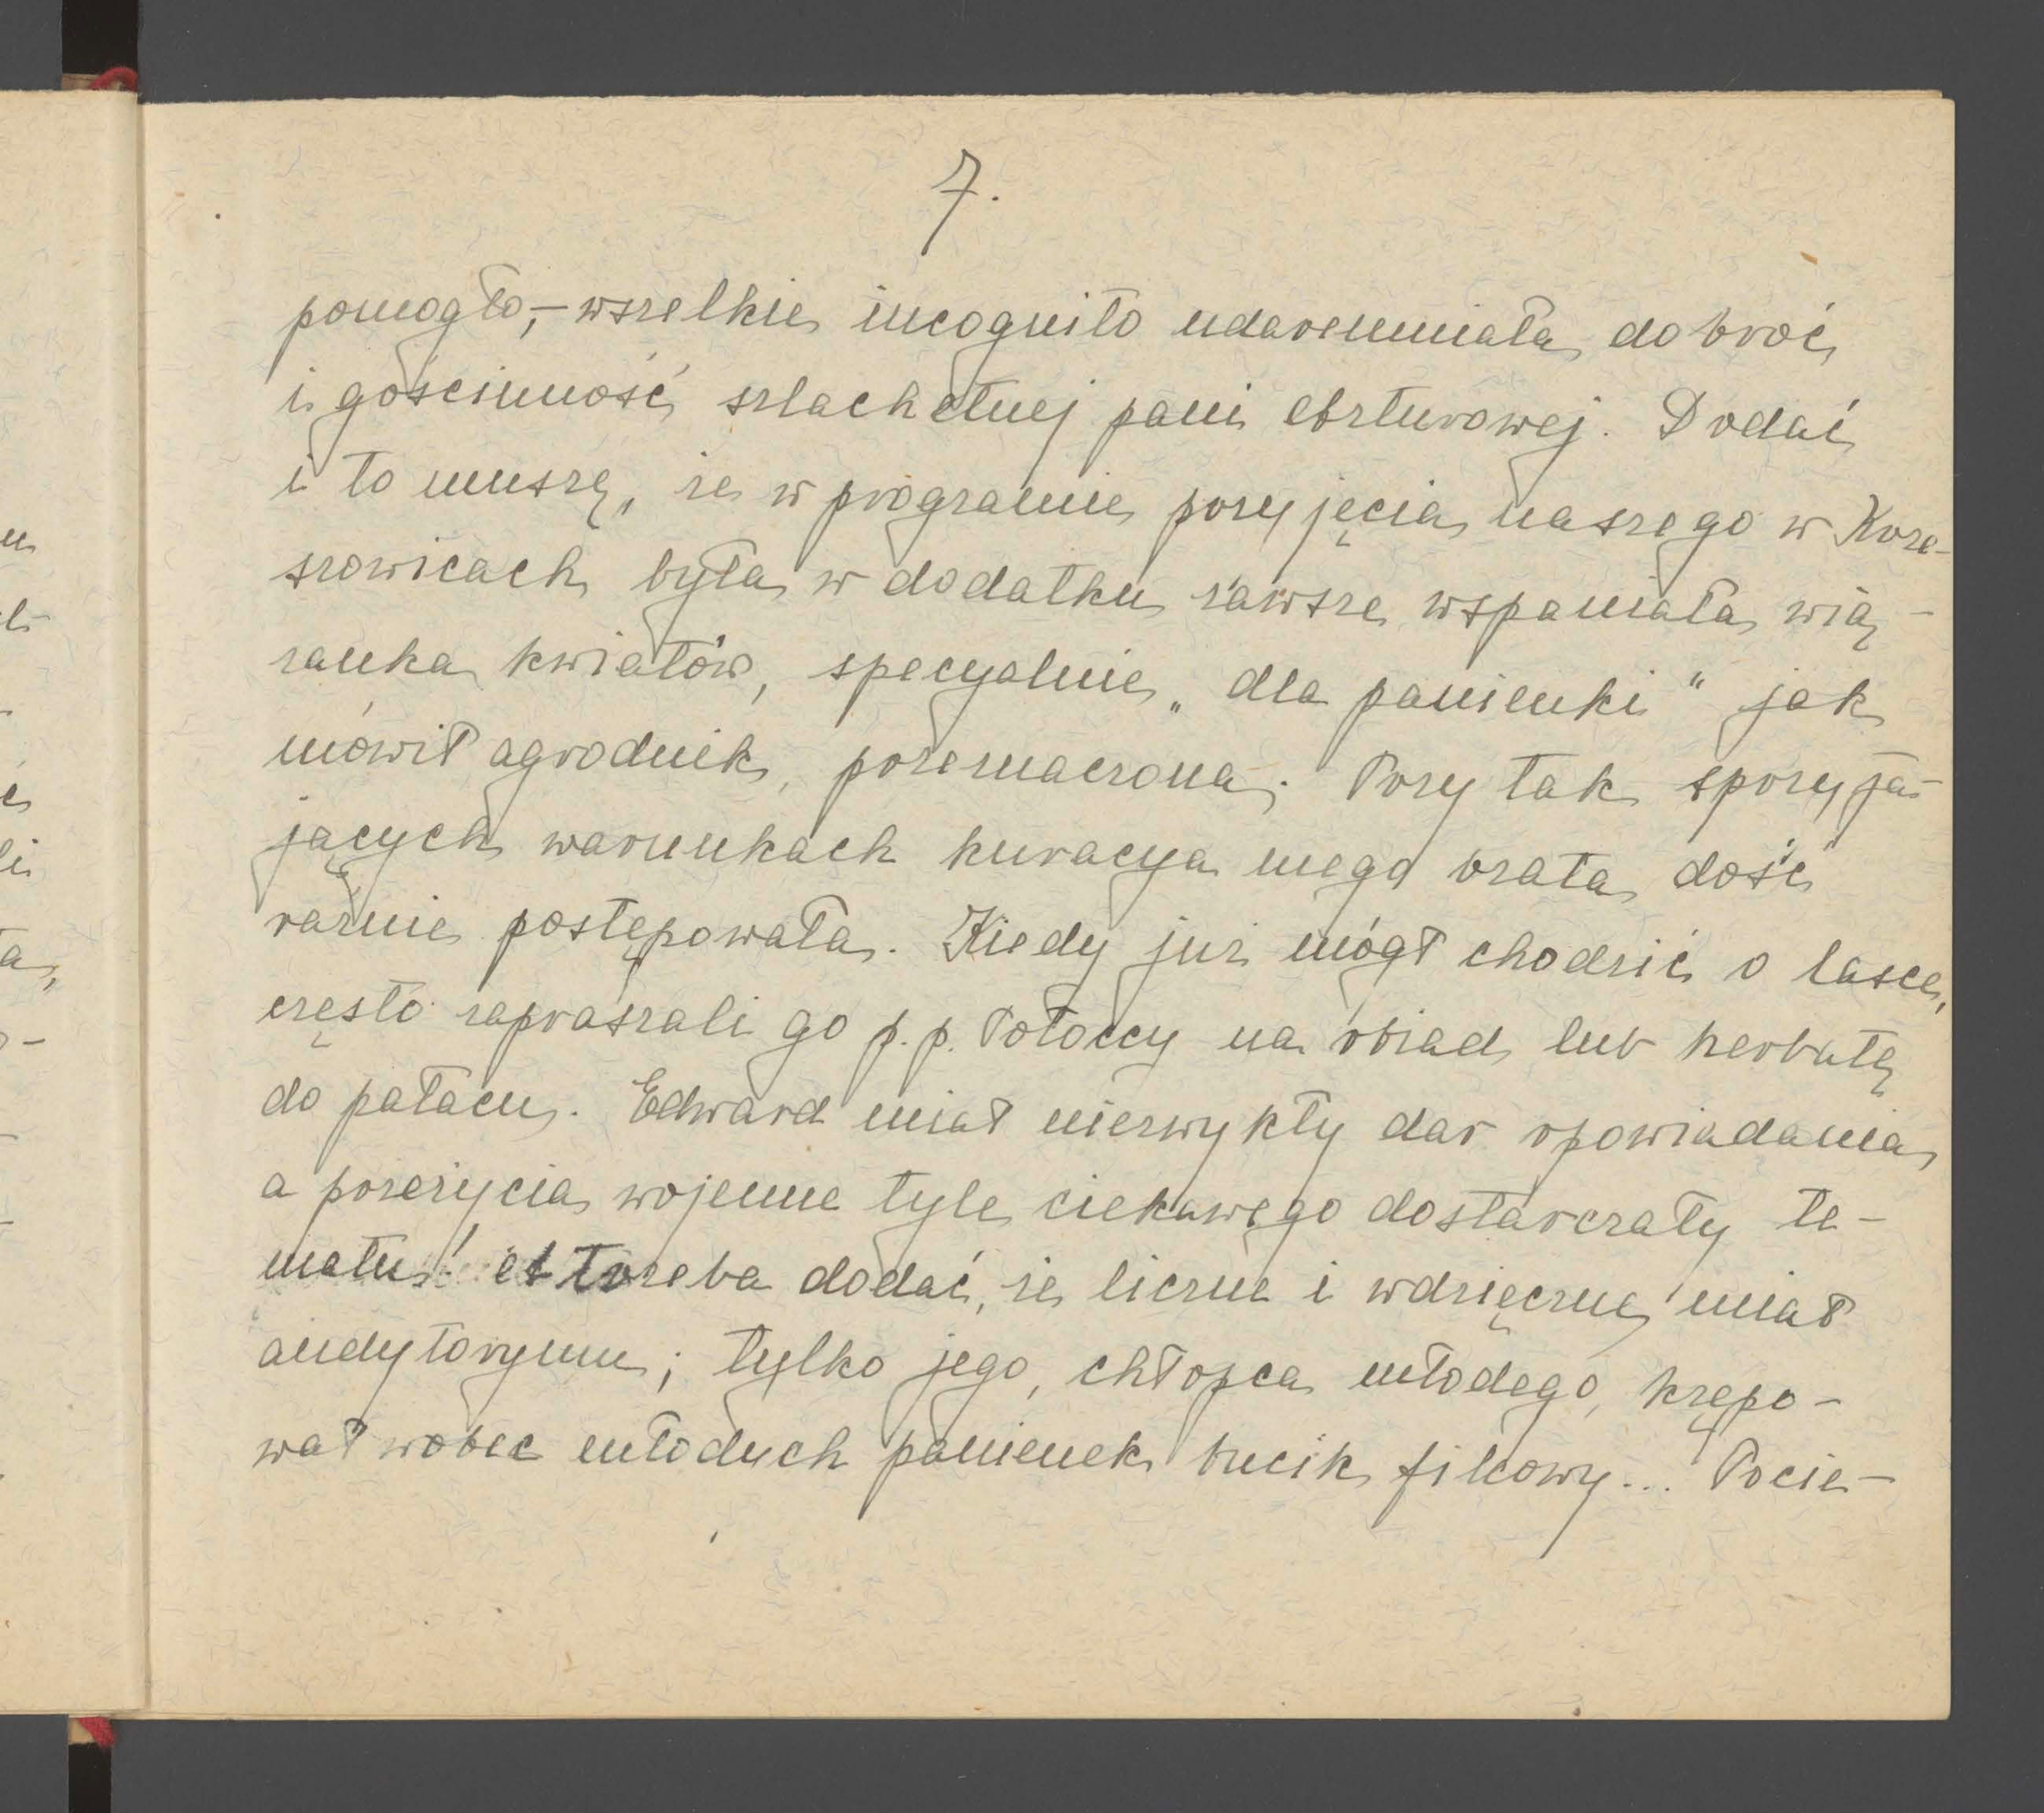 7.
pomogło,– wszelkie incognito udaremniała dobroć
i gościnność szlachetnej pani Arturowej. Dodać
i to muszę, że w programie przyjęcia naszego w Krze-
szowicach była w dodatku zawsze wspaniała wią-
zanka kwiatów, specyalnie „dla panienki“ jak
mówił ogrodnik, przeznaczona. Przy tak sprzyja-
jących warunkach kuracya mego brata dość
raźnie postępowała. Kiedy już mógł chodzić o lasce,
często zapraszali go p.p. Potoccy na obiad lub herbatę
do pałacu. Edward miał niezwykły dar opowiadania,
a przeżycia wojenne tyle ciekawego dostarczały te-
matu! A trzeba dodać, że liczne i wdzięczne miał
audytoryum; tylko jego, chłopca młodego, krępo-
wał wobec młodych panienek bucik filcowy... Pocie-